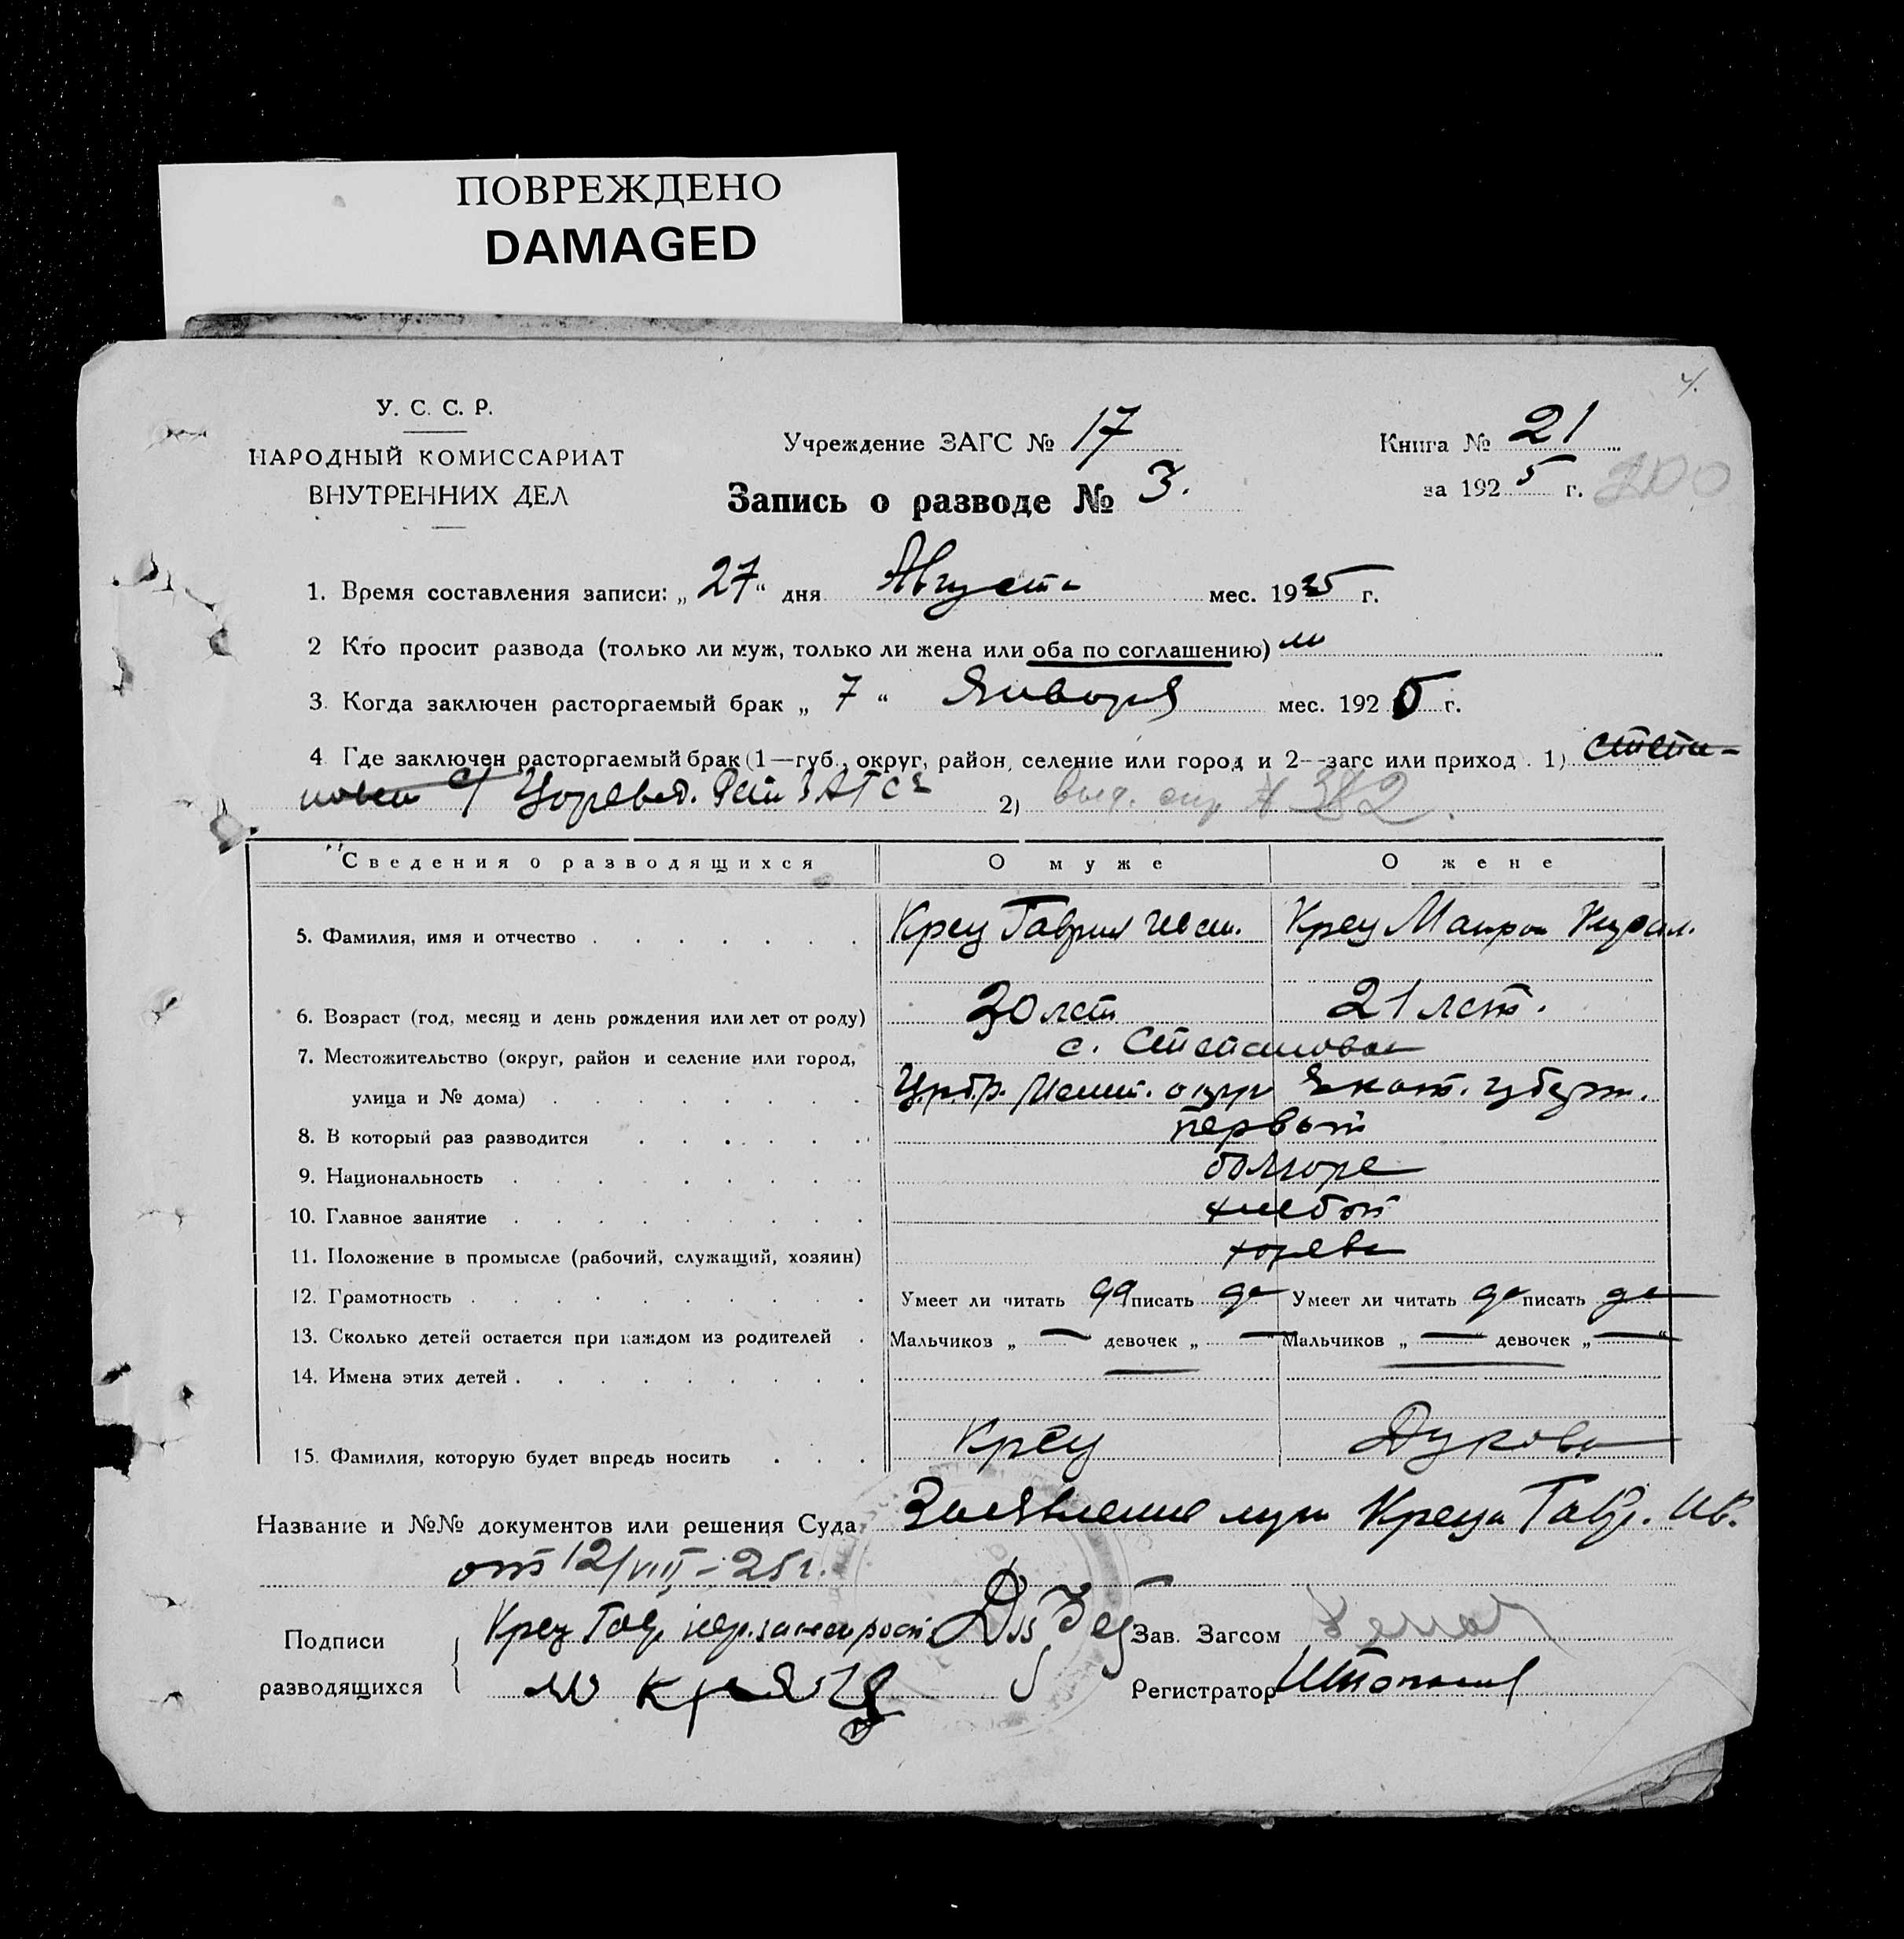 ПОВРЕЖДЕНО
DAMAGED
4.
У. С. С. Р.
НАРОДНЫЙ КОМИССАРИАТ
ВНУТРЕННИХ ДЕЛ
Учреждение ЗАГС № 17
Запись о разводе № 3.
Книга № 21
за 1925 г. 200
1. Время составления записи: „27“ дня Августа мес. 1925 г.
2 Кто просит развода (только ли муж, только ли жена или оба по соглашению)
3. Когда заключен расторгаемый брак „ 7 “ Января мес. 1925 г.
4 Где заключен расторгаемый брак (1—губ., округ, район, селение или город и 2—загс или приход . 1) Степа-
новка с/ Царевод. ЗАГСе 2) выд. спр. № 382.
Сведения о разводящихся О муже О жене
5. Фамилия, имя и отчество . Крец Гаврил Крец
6. Возраст (год, месяц и день рождения или лет от роду) 30 лет 21 лет.
7. Местожительство (округ, район и селение или город, с. Степановка
улица и № дома) . округ Екат. губерн.
8. В который раз разводится . первый
9. Национальность . болгаре
10. Главное занятие . хлебоп
11. Положение в промысле (рабочий, служащий, хозяин) хозяева
12. Грамотность . Умеет ли читать да писать да Умеет ли читать да писать да
13. Сколько детей остается при каждом из родителей . Мальчиков „ — девочек „ —“ Мальчиков „ —“ девочек „ —“
14. Имена этих детей . — —
15. Фамилия, которую будет впредь носить . Крец Дукова
Название и №№ документов или решения Суда: Заявление муж Креца Гавр. Ив.
от 12/VIII–25 г.
Подписи Крец Гавр. Зав. Загсом
разводящихся Регистратор